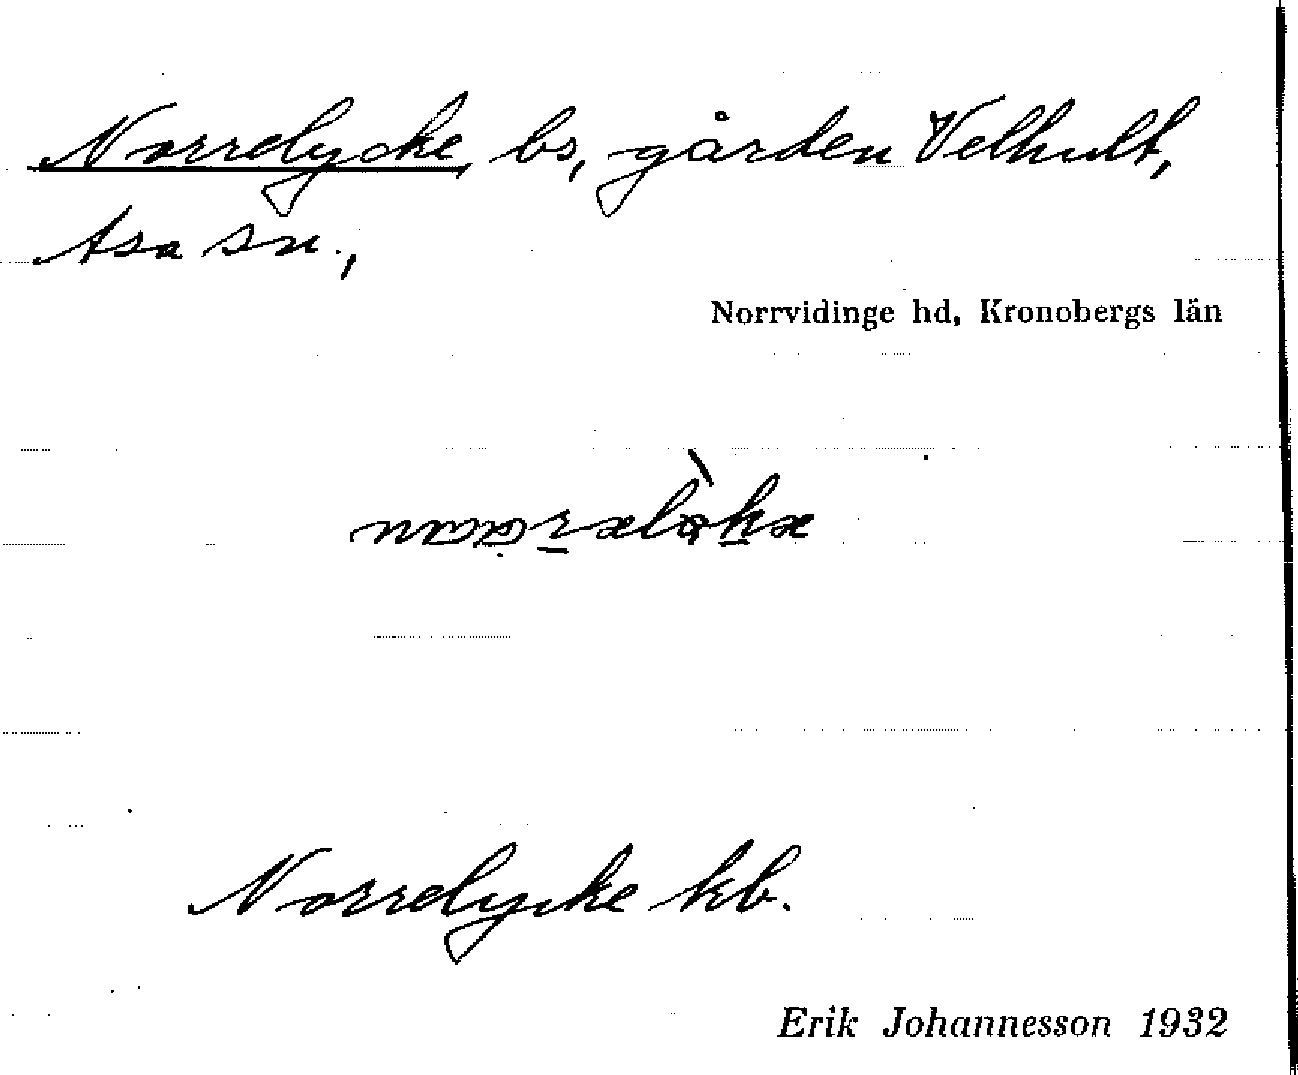 Norrelycke bs, gården Velhult,
Asa sn.,
Norrvidinge hd, Kronobergs län
Norrelycke kb.
Erik Johannesson 1932